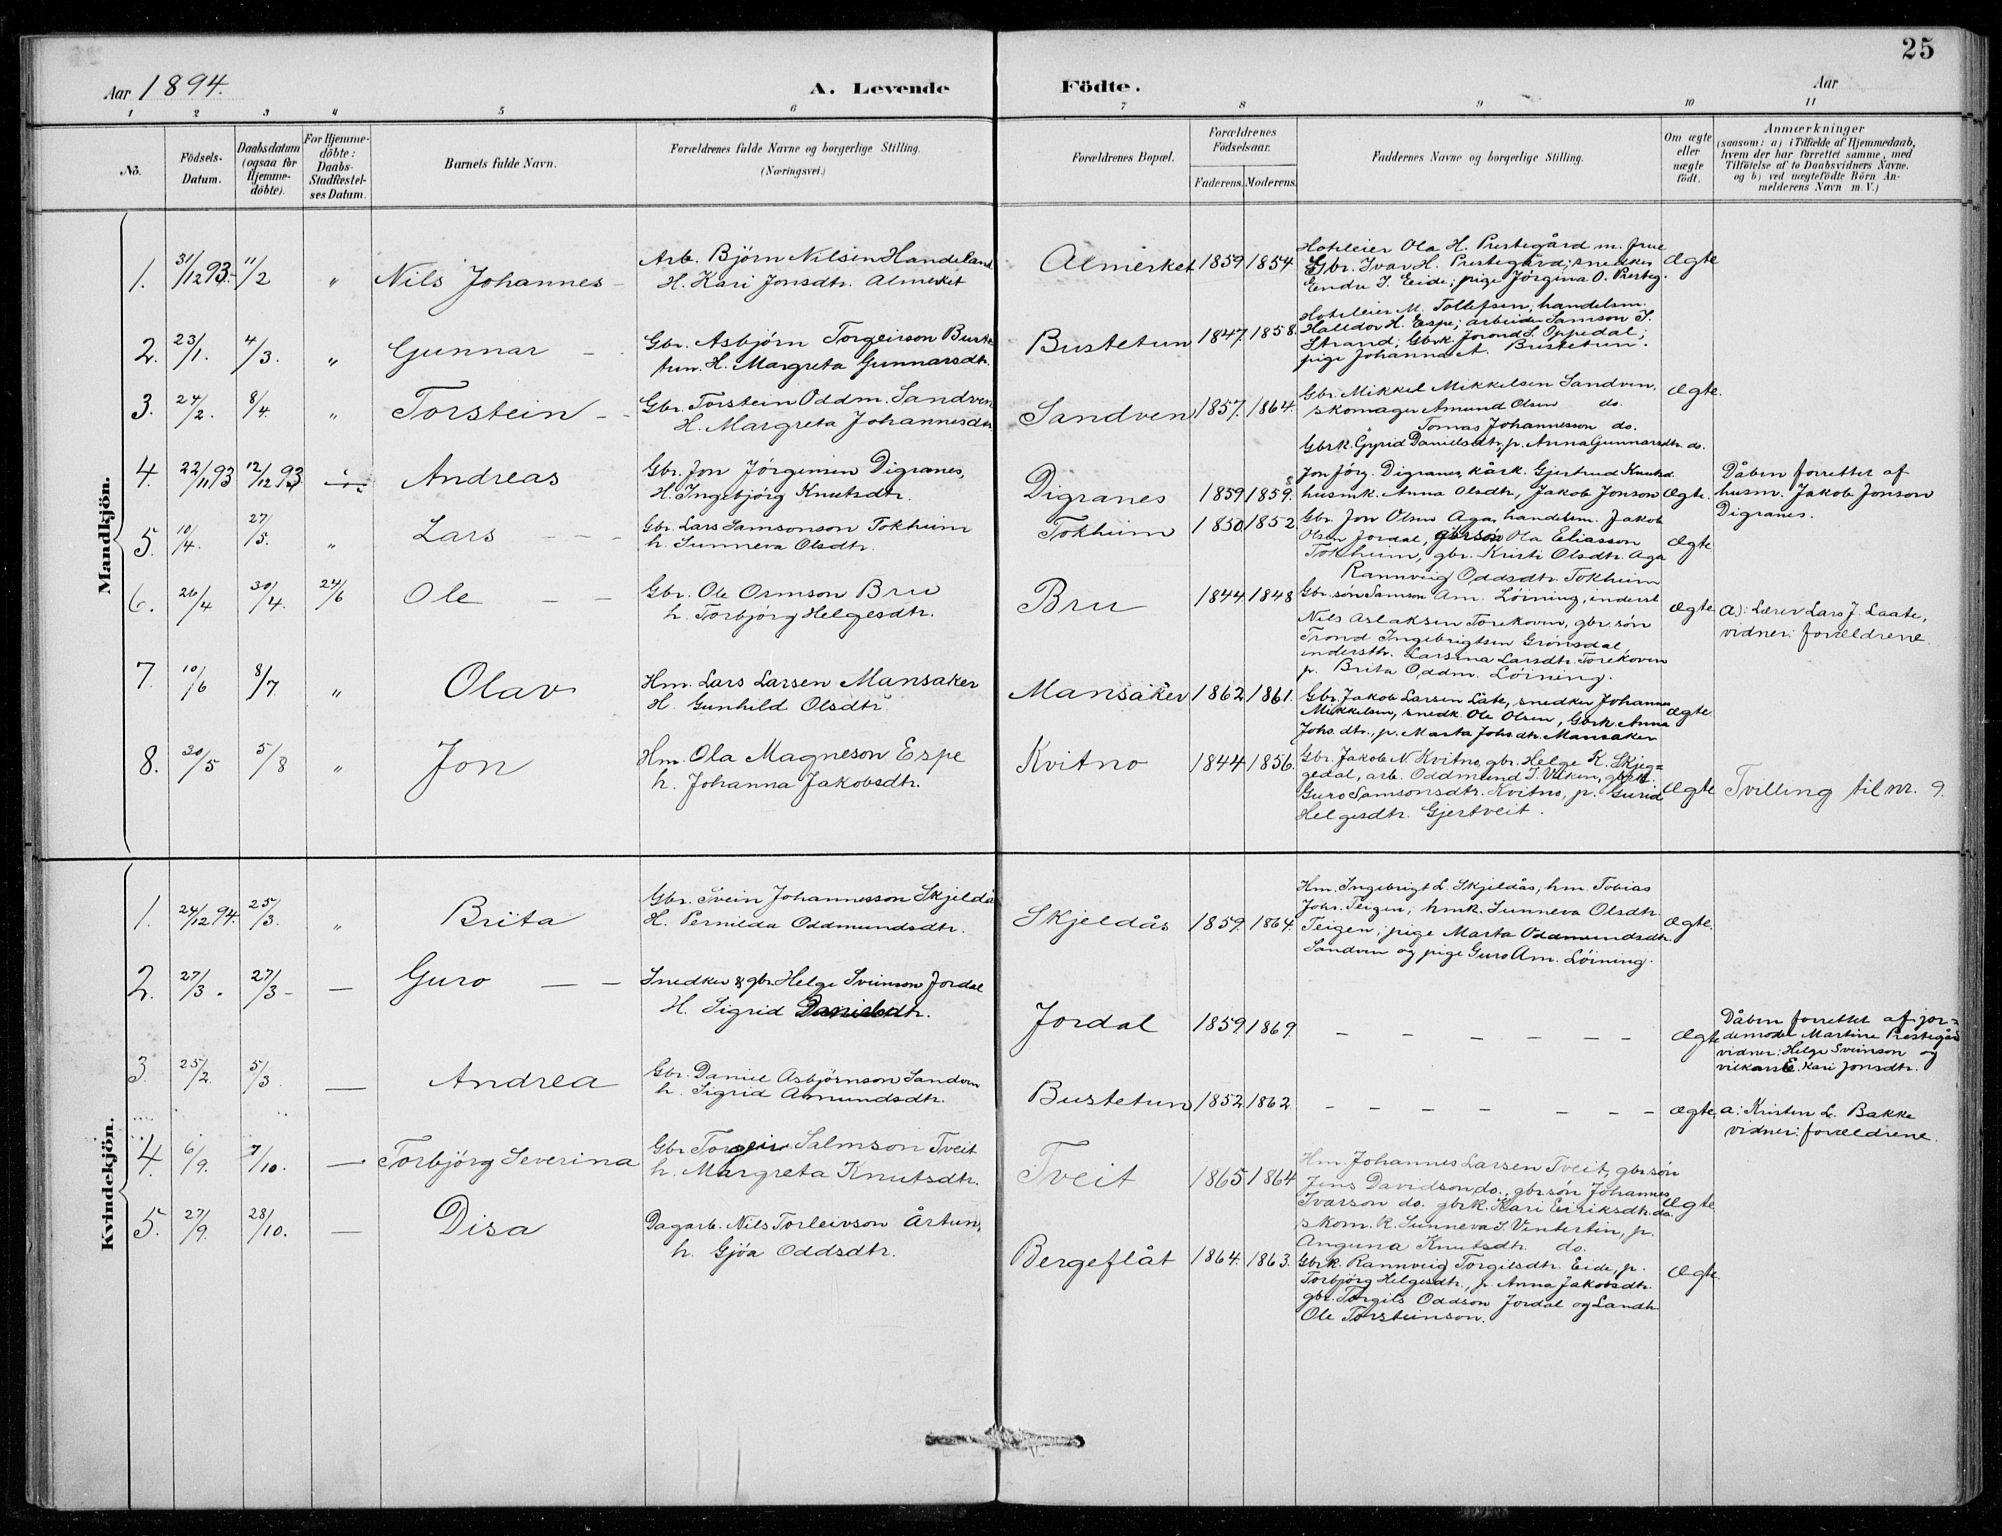 25
Aar 1894.
A. Levende
Födte.
Aar
1 2 3 4 5 6 7 8 9 10 11
No.
Födsels-Datum.
Daabsdatum (ogsaa for Hjemmedöbte).
For Hjemmedöbte: Daabs-Stadfæstelses Datum.
Barnets fulde Navn.
Forældrenes fulde Navne og borgerlige Stilling.
(Næringsvei.)
Forældrenes Bopæl.
Forældrenes Födselsaar.
Faderens. Moderens.
Faddernes Navne og borgerlige Stilling.
Om ægte eller uægte födt.
Anmærkninger
(saasom: a) i Tilfælde af Hjemmedaab, hvem der har forrettet samme, med Tilföielse af to Daabsvidners Navne, og b) ved uægtefödte Börn Anmelderens Navn m. V.)
Mandkjön.
1. 31/12 93. 11/2 " Nils Johannes -
Arb. Björn Nilsen Handeland
H. Kari Jonsdtr. Almerket
Almerket 1859 1854
Hoteleier Ola H. Prestegård m. frue
Gbr. Ivar H. Prestegård; snedker
Endre I. Eide; pige Jørgina O. Presteg.
Ægte
2. 23/1. 4/3. " Gunnar - -
Gbr. Asbjörn Torgeirson Buste
tun. H. Margreta Gunnarsdtr.
Bustetun 1847. 1858.
Hoteleier M. Tollefsen, handelsm.
Halldor H. Espe; arbeider Samson I.
Strand; Gbrk. Jorond L. Oppedal;
pige Johanna A. Bustetun.
3. 24/2. 8/4 " Torstein - -
Gbr. Torstein Oddm. Sandven
H. Margreta Johannesdtr
Sandven 1857. 1864.
Gbr. Mikkel Mikkelsen Sandven,
skomager Amund Olsen do.
Tomas Johannesson do.
Gbrk. Gyrid Danielsdtr, p. Anna Gunnarsdtr. do.
Ægte.
4. 22/11 93 12/12 93 Andreas
Gbr. Jon Jörgensen Digranes,
H. Ingebjörg Knutsdtr.
Digranes 1859 1859.
Jon Jörg. Digranes, kårk. Gjertrud Knutsd.
husmk. Anna Olsdtr, Jakob Jonson
Ægte.
Dåben forrettet af
husm. Jakob Jonson
Digranes.
5. 10/4. 27/5. " Lars - - -
Gbr. Lars Samsonson Tokheim
h. Sunneva Olsdtr.
Tokheim 1850 1852
Gbr. Jon Olsen Aga, handelsm. Jakob
Olsen Jordal, gbrsøn Ola Eliasson
Tokheim, gbr. Kristi Olsdtr. Aga
Rannveig Oddsdtr. Tokheim
Ægte.
6. 26/4 30/4. 24/6 Ole - -
Gbr. Ole Ormson Bru
h. Torbjörg Helgesdtr.
Bru 1844 1848
Gbr. søn Samson Am. Löining, inderst
Nils Aslaksen Torekoven, gbr. søn
Trond Ingebrigtsen Grönsdal,
inderstk. Larsina Larsdtr. Torekoven
p. Brita Oddm. Löining.
Ægte
a): Lærer Lars J. Laate,
vidner: forældrene.
7. 10/6 8/7 " Olav
Hm. Lars Larsen Mansaker
H. Gunhild Olsdtr.
Mansaker 1862 1861.
Gbr. Jakob Larsen Låte, snedker Johannes
Mikkelsen, snedk. Ole Olsen, Gbrk. Anna
Johs. dtr., p. Marta Johs. dtr. Mansaker
Ægte.
8. 30/5 5/8 " Jon
Hm. Ola Magneson Espe
h. Johanna Jakobsdtr.
Kvitno 1844 1856.
Gbr. Jakob N. Kvitno, gbr. Helge K. Skjeg=
gedal, arb. Oddmund I. Viken, gbrk.
Guro Samsonsdtr. Kvitno, p. Gurid
Helgesdtr. Gjertveit.
Ægte
Tvilling til nr. 9.
Kvindekjön.
1. 24/12 94. 25/3. " Brita
Gbr. Svein Johannesson Skjeldå
H. Pernilda Oddmundsdtr.
Skjeldås 1859. 1864.
Hm. Ingebrigt L. Skjeldås, hm. Tobias
Johs. Teigen; hmk. Sunneva Olsdtr.
Teigen; pige Marta Oddmundsdtr.
Sandven og pige Guro Am. Löining.
Ægte.
2. 27/3. 27/3 - — Guro — —
Snedker & gbr. Helge Sveinson Jordal
H. Sigrid Danielsdtr.
Jordal 1859 1869. - - - - - -
Ægte
Dåben forrettet af jor=
demoder Martine Prestegår
vidner: Helge Sveinson og
vilkarsk. Kari Jonsdtr.
3. 25/2. 5/3. — Andrea
Gbr. Daniel Asbjörnson Sandven
h. Sigrid Amundsdtr.
Bustetun 1852 1862. - - - - - - -
Ægte
a: Kristen L. Bakke
vidner: forældrene.
4. 6/9. 7/10. — Torbjörg Severina
Gbr. Torgeir Salmson Tveit
h. Margreta Knutsdtr.
Tveit 1865 1864
Hm. Johannes Larsen Tveit, gbrsøn
Jens Davidson do., gbrsøn Johannes
Ivarson do. gbrk. Kari Eiriksdtr. do.
skom. k. Sunneva S. Vintertin, p.
Anguna Knutsdtr. do.
Ægte.
5. 27/9. 28/10. — Disa
Dagarb. Nils Torleivson Årtun,
h. Gjöa Oddsdtr.
Bergeflåt 1864. 1863.
Gbrk. Rannveig Torgilsdtr. Eide, p.
Torbjörg Helgesdtr., p. Anna Jakobsdtr.
gbr. Torgils Oddson Jordal og Landh.
Ole Torsteinson.
Ægte.